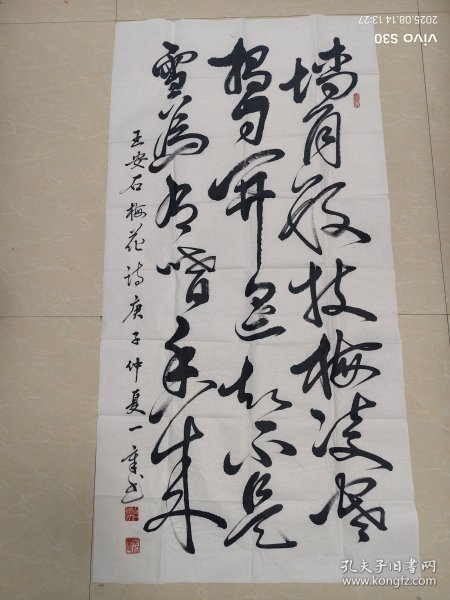 vivo S30
2025.08.14 13:27
墙角数枝梅凌寒
独自開遥知不是
雪為有暗香来
王安石梅花诗庚子仲夏一书
孔夫子旧书网
www.kongfz.com